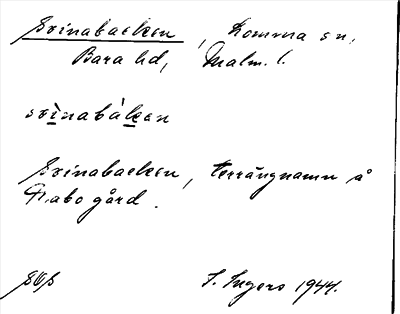 Svinabacken, Lomma sn,
Bara hd, Malm. l.
svìnabáken
Svinabacken, terrängnamn å
gård.
I. Ingers 1944.